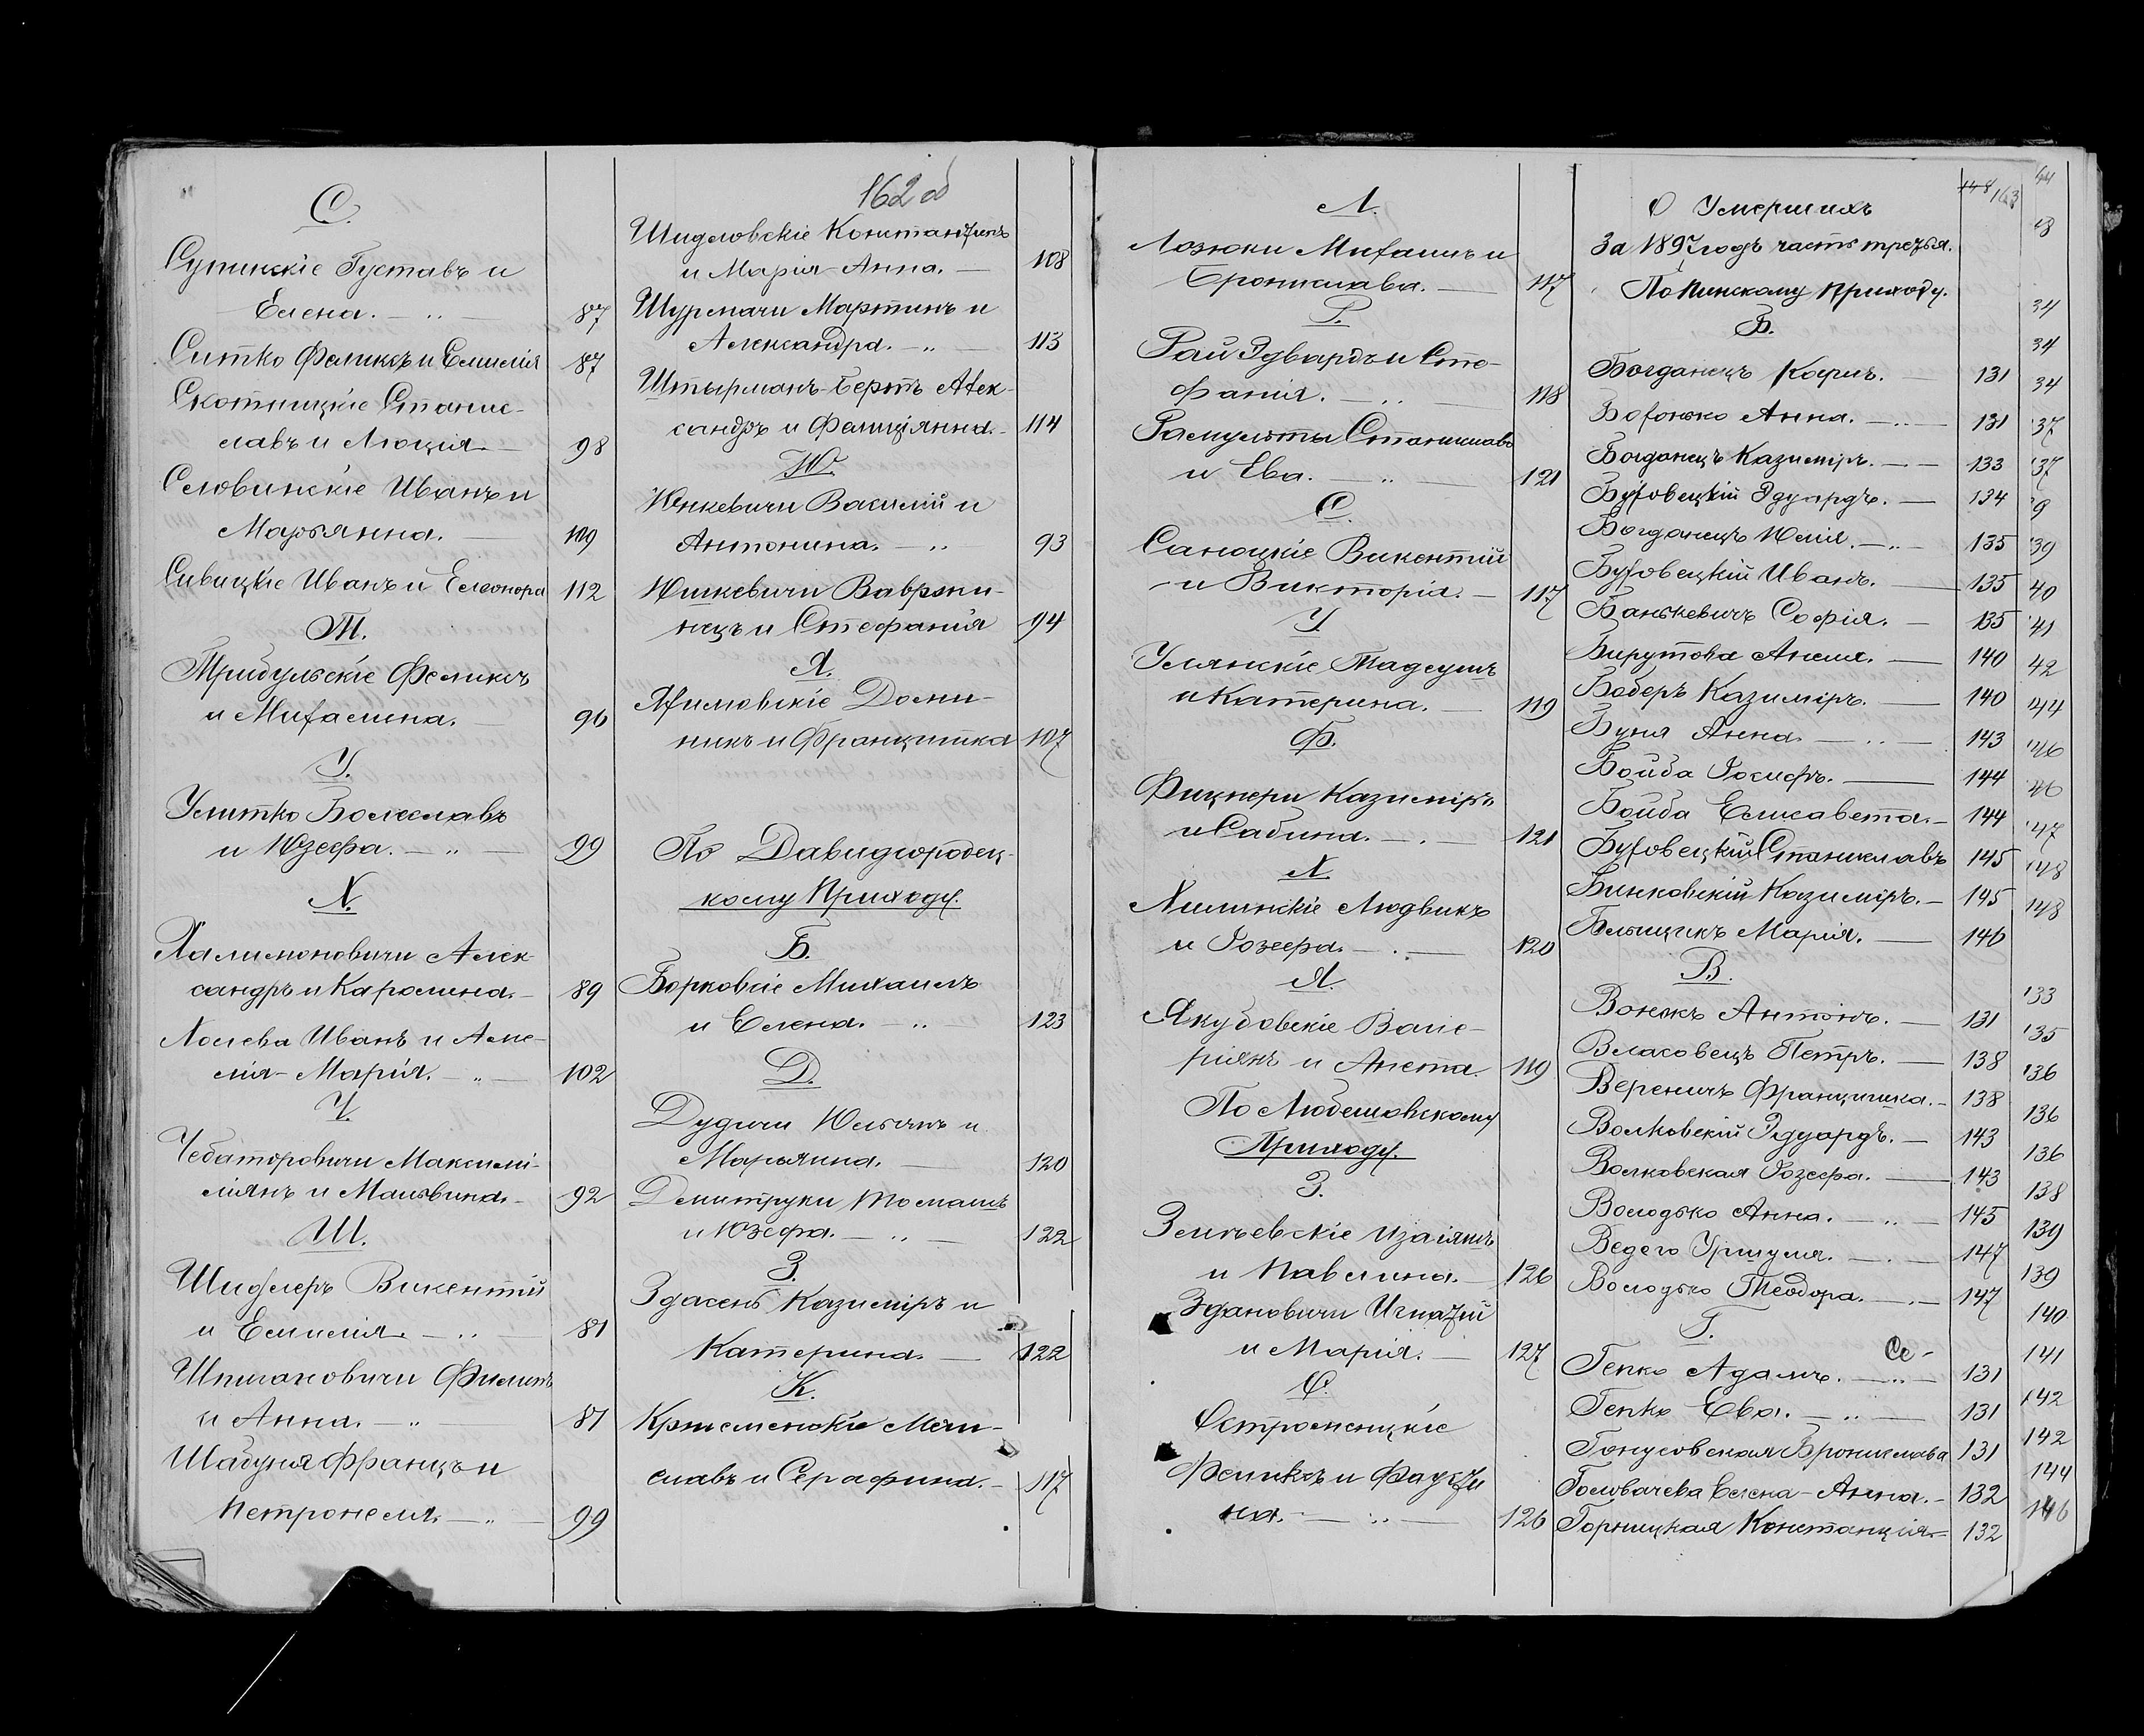 С.
Супинскіе Густавъ и
Елена. — 87
Ситко Феликсъ и Емилія 87
Скотницкіе Станис-
лавъ и Люція. — 98
Словинскіе Иванъ и
Марьянна. — 109
Сивицкіе Иванъ и Елеонора 112
Т.
Трибульскіе Феликсъ
и Михалина. 96
У.
Улитко Болеславъ
и Юзефа. — 99
Х.
Халимоновичи Алек-
сандръ и Каролина. — 89
Холева Иванъ и Аме-
лія-Марія. — 102
Ч.
Чебаторовичи Максими-
ліянъ и Мальвина. — 92
Ш.
Шифлеръ Викентій
и Емилія. — 81
Шпилановичи Филипъ
и Анна. — 81
Шабуня Францъ и
Петронеля. — 99
162 об
Шидловскіе Константинъ
и Марія-Анна. — 108
Шурмачи Мартинъ и
Александра. — 113
Штырманъ-Бертъ Алек-
сандръ и Фелиціянна. — 114
Ю.
Юнкевичи Василій и
Антонина. — 93
Юшкевичи Ваврэни-
нецъ и Стефанія 94
Я.
Яхимовскіе Доми-
никъ и Францишка 107
По Давидгородец-
кому Приходу.
Б.
Борковскіе Михаилъ
и Елена. — 123
Д.
Дудичи Юльянъ и
Марьянна. — 120
Демитруки Томашъ
и Юзефа. — 122
З.
Здасень Казиміръ и
Катерина. — 122
К.
Кржеменскіе Мечи-
славъ и Серафина. — 117
Л.
Лозюки Михаилъ и
Бронислава. — 117
Р.
Рай Эдвардъ и Сте-
фанія. — 118
Рамульты Станиславъ
и Ева. — 121
С.
Саноцкіе Викентій
и Викторія. — 117
У.
Улянскіе Тадеушъ
и Катерина. — 119
Ф.
Фицнери Казиміръ
и Сабина. — 121
Х.
Хилинскіе Людвикъ
и Розефа. — 120
Я.
Якубовскіе Вале-
ріянъ и Анета. 119
По Любешовскому
Приходу.
З.
Зенъевскіе Изаіяшъ
и Павлина. — 126
Здановичи Игнатій
и Марія. — 127
О.
Остромецкіе
Феликсъ и Фаусти
на. — 126
148 163
О Умершихъ
За 1897 годъ часть третья.
По Пинскому Приходу.
Б.
Богданецъ Кароль. 131
Бохонко Анна. — 131
Богданецъ Казиміръ. — 133
Буховецкій Эдуардъ. — 134
Богданецъ Юлія. — 135
Буховецкій Иванъ. — 135
Банькевичъ Софія. — 135
Бирутова Анеля. — 140
Боберъ Казиміръ. — 140
Буня Анна. — 143
Бойба Іосифъ. — 144
Бойба Елисавета. — 144
Буховецкій Станиславъ 145
Бинковскій Казиміръ. — 145
Бельщикъ Марія. — 146
В.
Вонжъ Антонъ. — 131
Власовецъ Петръ. — 138
Вереничъ Францишка. — 138
Волковскій Эдуардъ. — 143
Волковская Розефа. — 143
Володько Анна. — 145
Ведего Уршуля. — 147
Володько Теодора. — 147
Г.
Гепко Адамъ. — 131
Гепко Ева. — 131
Гонусовская Бронислава 131
Головачева Елена-Анна. — 132
Горницкая Констанція. — 132
44
34
34
34
37
37
39
40
41
42
44
46
46
47
148
148
133
135
136
136
136
138
139
139
140
141
142
142
144
146